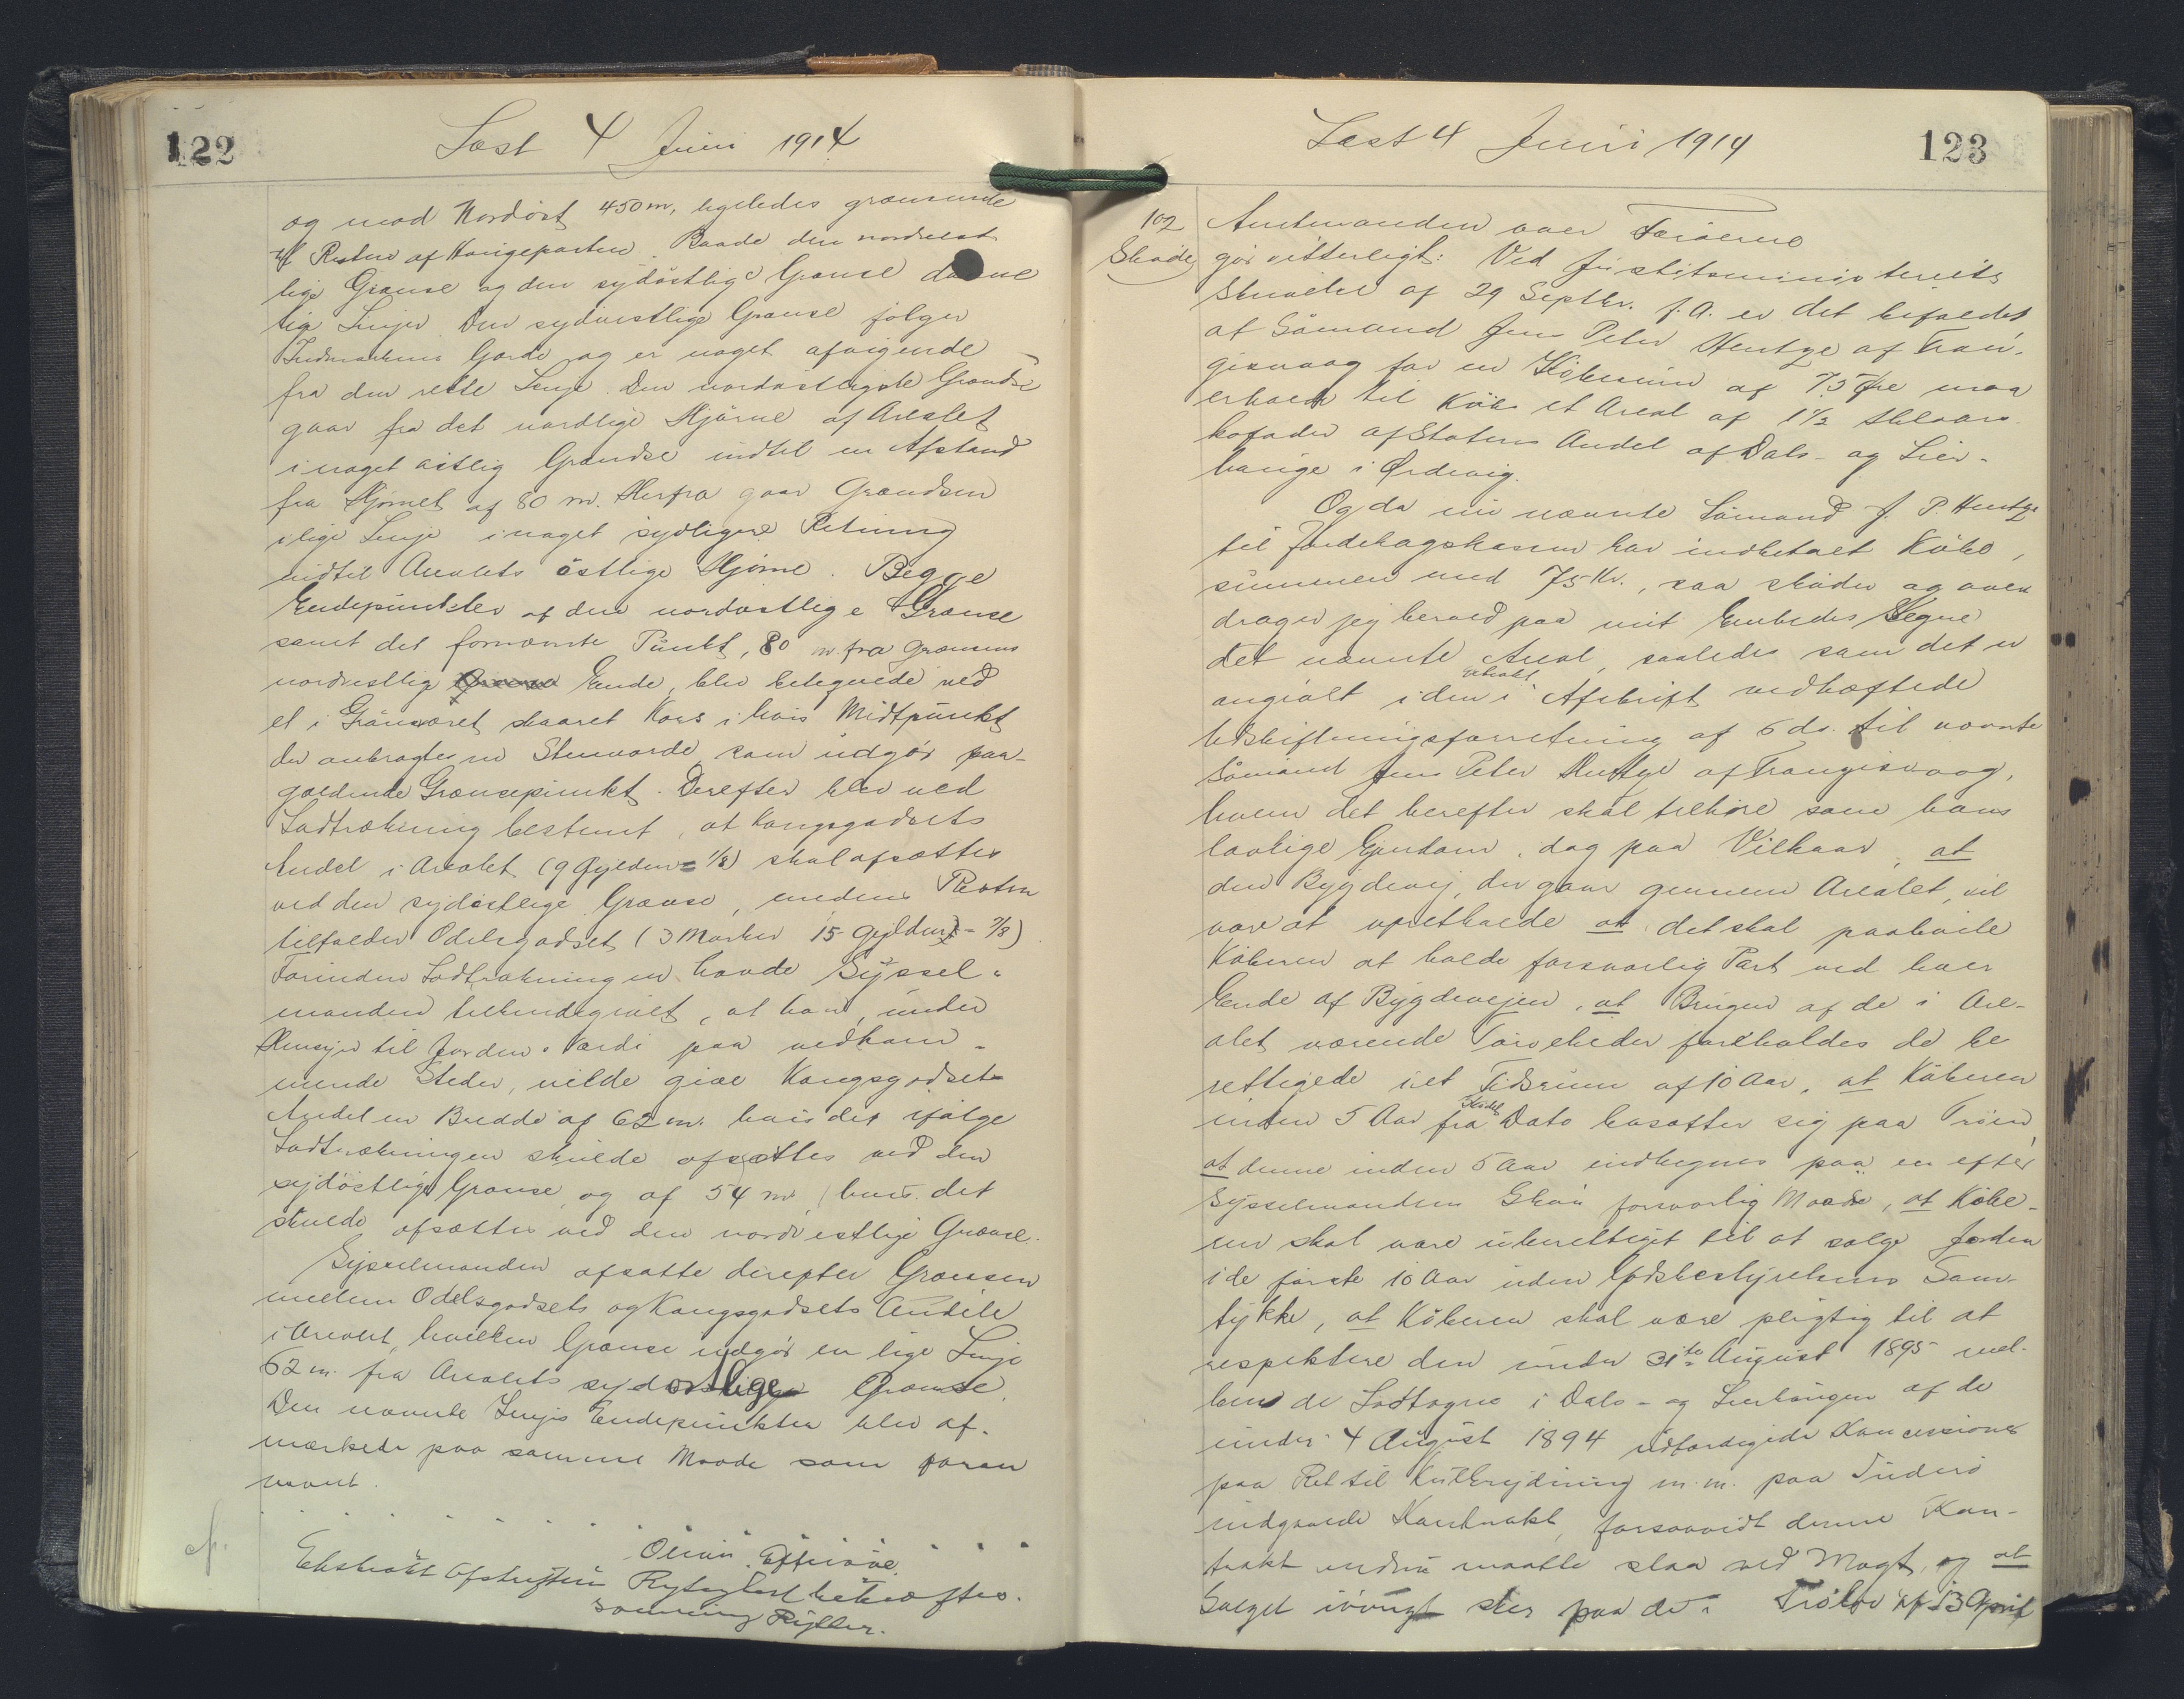 122
Læst 4 Juni 1914
og mod Nordöst 450 m, ligeledes grænsende
til Resten af Haugeparten. Baade den nordvest-
lige Grænse og den sydöstlige Grænse danne
lige Linjer. Den sydvestlige Grænse følger
Indmarkens Gærde og er noget afvigende
fra den rette Linje. Den nordöstligste Grændse
gaar fra det nordlige Hjörne af Arealet
i noget östlig Grændse indtil en Afstand
fra Hjörnet af 80 m. Herfra gaar Grændsen
i lige Linje i noget sydligere Retning
indtil Arealets östlige Hjörne. Begge
Endepunkter af den nordöstlige Grænse
samt det fornævnte Punkt, 80 m. fra Grænsens
nordvestlige Ende, blev betegnede ved
et i Grönsværet skaaret Kors i hvis Midtpunkt
der anbragtes en Stenvarde, som udgör paa-
gældende Grænsepunkt. Derefter blev ved
Lodtrækning bestemt, at Kongsgodsets
Andel i Arealet (9 Gylden = 1/8) skal afsættes
ved den sydöstlige Grænse, medens Resten
tilfalder Odelsgodset (3 Marker 15 Gylden = 7/8)
Forinden Lodtrækningen havde Syssel-
manden tilkendegivet, at han, under
Hensyn til Jordens Værdi paa vedkom-
mende Steder, vilde give Kongsgodsets
Andel en Bredde af 62 m. hvis det ifölge
Lodtrækningen skulde afsættes ved den
sydöstlige Grænse, og af 54 m, hvis det
skulde afsættes ved den nordvestlige Grænse.
Sysselmanden afsatte derefter Grænsen
mellem Odelsgodsets og Kongsgodsets Andele
i Arealet, hvilken Grænse udgör en lige Linje
62 m. fra Arealets sydostlige Grænse.
Den nævnte Linjes Endepunkter blev af-
mærkede paa samme Maade som foran
nævnt.
Ekstrakt Afskriftens Rigtighed bekræftes.
123
Læst 4 Juni 1914
102 Amtmanden over Færöerne
Sköde gör vitterligt: Ved Justitsministeriets
Skrivelse af 29 Septbr. f. A. er det befalet
at Sömand Jens Peter Hentze af Tran-
gisvaag for en Köbesum af 75 Øre maa
erholde til Købs et Areal af 1 1/2
af Statens Andel af Dals- og Lier-
hauge i Ørdevig.
Og da nu nævnte Sömand J. P. Hentze
til Jordebogskassen har indbetalt Købe-
summen med 75 Kr., saa sköder og over
drager jeg herved paa mit Embedes Vegne
det nævnte Areal, saaledes som det er
angivet i den i ekstrakt Afskrift vedhæftede
Udskiftningsforretning af 6 ds. til nævnte
Sömand Jens Peter Hentze af Trangisvaag,
hvem det herefter skal tilhöre som hans
lovlige Ejendom, dog paa Vilkaar, at
den Bygdevej, der gaar gennem Arealet, vil
være at opretholde at det skal paahvile
Köberen at holde forsvarlig Port ved hver
Ende af Bygdevejen, at Brugen af de i Are-
alet værende Törvesteder forbeholdes de be
rettigede i et Tidsrum af 10 Aar, at Köberen
inden 5 Aar fra Skødets Dato bosætter sig paa Tröen,
at denne inden 5 Aar indhegnes paa en efter
Sysselmandens Skön forsvarlig Maade, at Købe-
ren skal være uberettiget til at sælge Jorden
i de förste 10 Aar uden Godsbestyrelsens Sam-
tykke, at Köberen skal være pligtig til at
respektere den under 31te August 1895 mel-
lem de Lodtagne i Dals- og Lierhaugen af de
under 4 August 1894 udfærdigede Koncessioner
paa Ret til Kulbrydning m.m. paa Suderö
indgaaede Kontrakt, forsaavidt denne Kon-
trakt endnu maatte staa ved Magt, og at
Salget iövrigt sker paa de i Trölov af 13 April